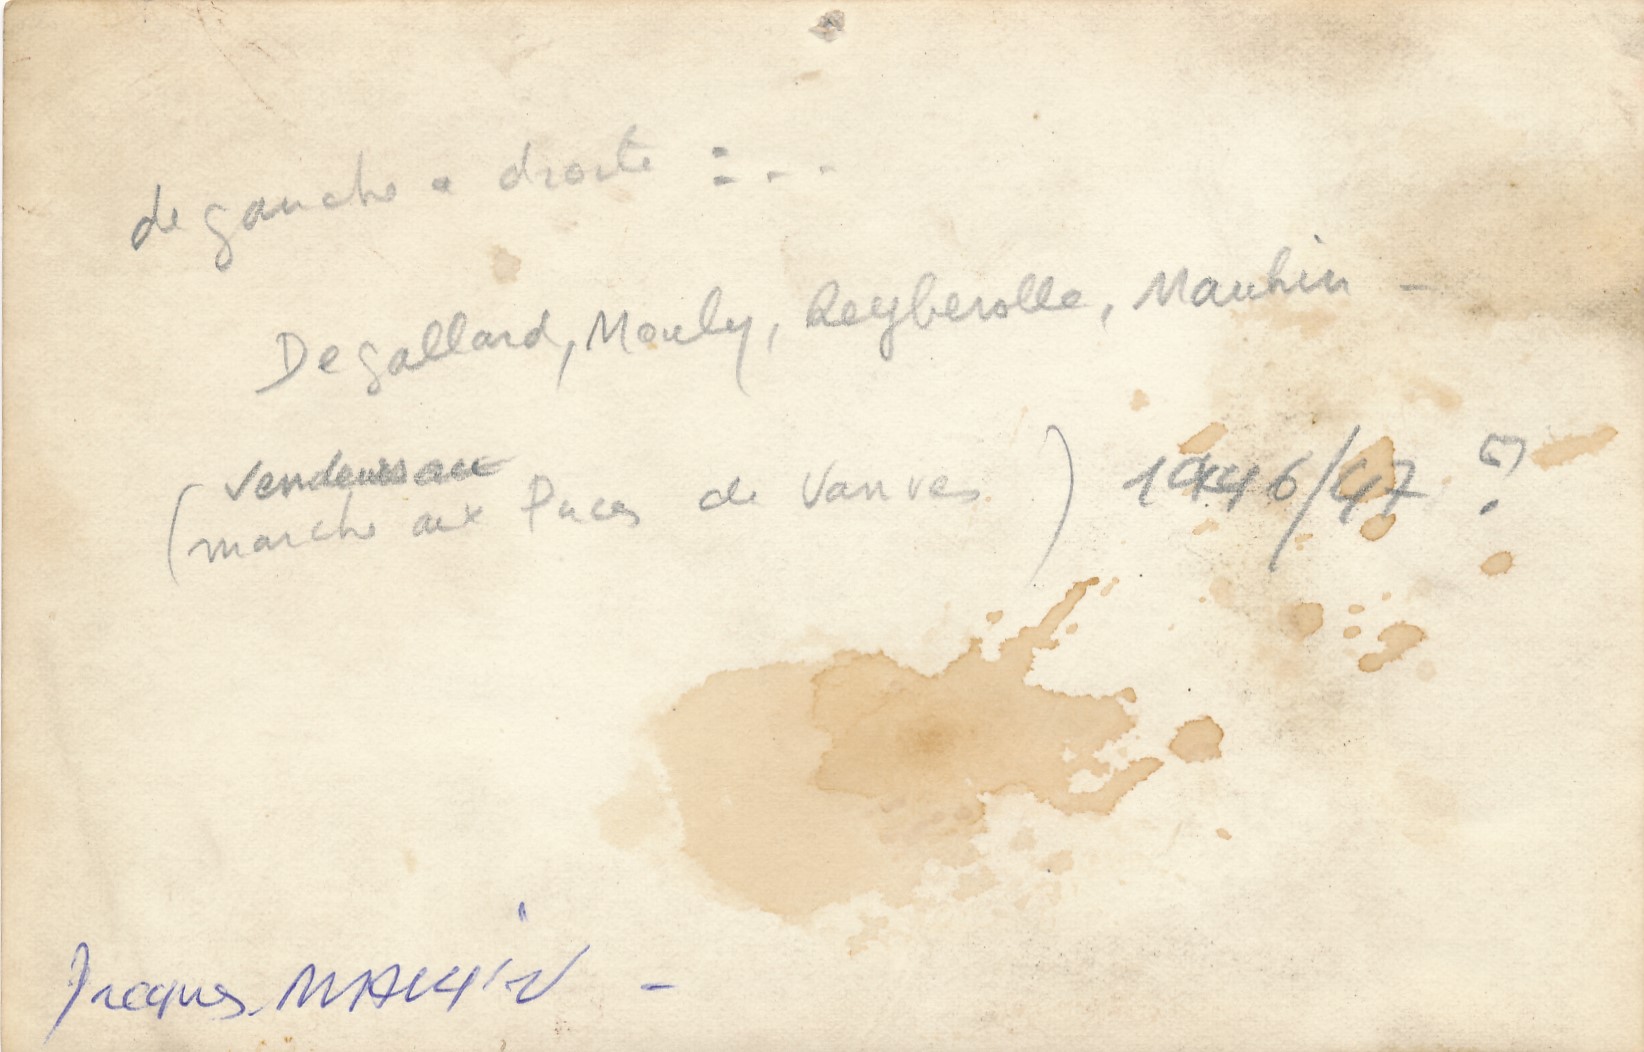 de gauche a droite : . .
De gallard, Mouly, Reyberolle, Mauhin -
vendeurs au
(marche aux Puces de Vanves) 1946/47 ?
Jacques MAUHiN -